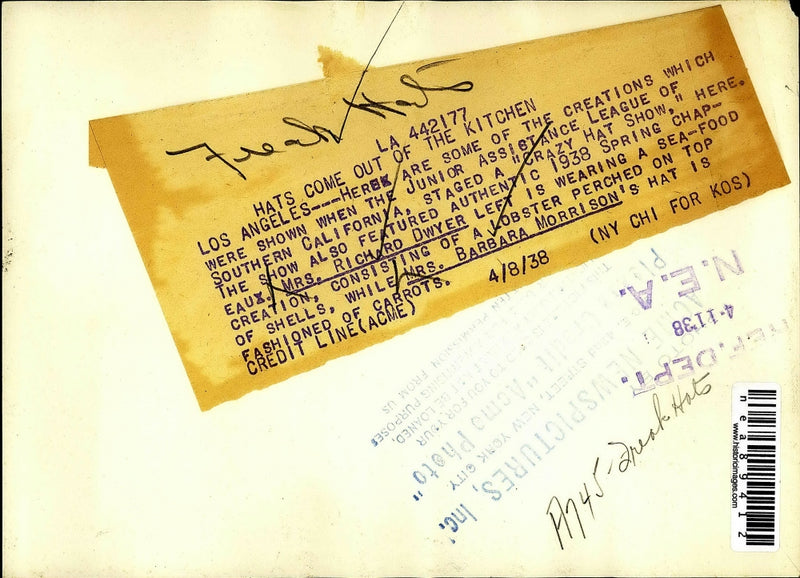 Freak Hats
LA 442177
HATS COME OUT OF THE KITCHEN
LOS ANGELES---HERE ARE SOME OF THE CREATIONS WHICH
WERE SHOWN WHEN THE JUNIOR ASSISTANCE LEAGUE OF
SOUTHERN CALIFORNIA, STAGED A "CRAZY HAT SHOW," HERE.
THE SHOW ALSO FEATURED AUTHENTIC 1938 SPRING CHAP-
EAUX. MRS. RICHARD DWYER LEFT IS WEARING A SEA-FOOD
CREATION, CONSISTING OF A LOBSTER PERCHED ON TOP
OF SHELLS, WHILE MRS. BARBARA MORRISON'S HAT IS
FASHIONED OF CARROTS.
CREDIT LINE(ACME) 4/8/38 (NY CHI FOR KOS)
N.E.A.
4-11-38
REF. DEPT.
ACME NEWSPICTURES, Inc.
STREET, NEW YORK CITY
"Acme Photo"
TO YOU FOR YOUR
BE LOANED,
PURPOSES
PERMISSION FROM US
A745-Freak Hats
nea89412
www.historicimages.com